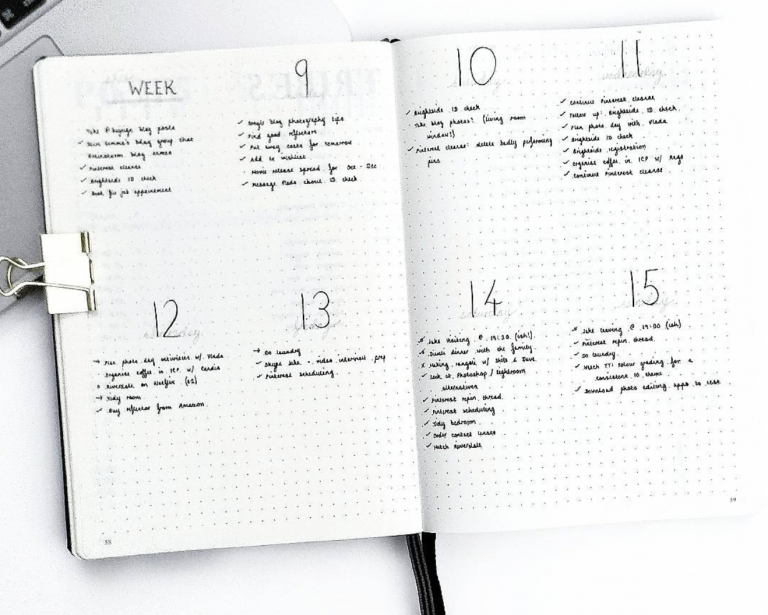 WEEK
Take & upload blog posts
✓ Join Gemma's blog group that
brainstorm blog names
✓ Pinterest cleanse
✓ Brightside ID check
✓ Book jsc job appointment
9
✓ Google blog photography tips
✓ Find good reflectors
✓ Put away coats for tomorrow
✓ Add to wishlist
Movie release spread for Oct - Dec
✓ Message Nada about ID check
10
✓ Brightside ID check
Take blog photos! (living room
window!)
✓ Pinterest cleanse: delete badly performing
pins
11
✓ Continue Pinterest cleanse
✓ Follow up: Brightside ID check
✓ Plan photo day with Nada
✓ Brightside ID check
✓ Brightside registration
✓ Organise coffee in ICP w/
✓ Continue Pinterest cleanse
12
→ Plan photo day interviews w/ Nada
Organise coffee in ICP w/
x Riverdale on Netflix (s2)
→ Tidy room
✓ Buy reflector from Amazon
13
→ Do laundry
✓ Skype Jake - video interview prep
✓ Pinterest scheduling
14
Jake visiting @ 19:30 (ish!)
Dinner with the family
x w/ & Dave
✓ Look at Photoshop / Lightroom
alternatives
✓ Pinterest repin thread
✓ Pinterest scheduling
✓ Tidy bedroom
✓ Order contact lenses
✓ Watch Riverdale
15
✓ Jake leaving @ 19:00 (ish)
✓ Pinterest repin thread
✓ Do laundry
✓ Watch YT: colour grading for a
consistent IG theme
✓ Download photo editing apps to test
58
59